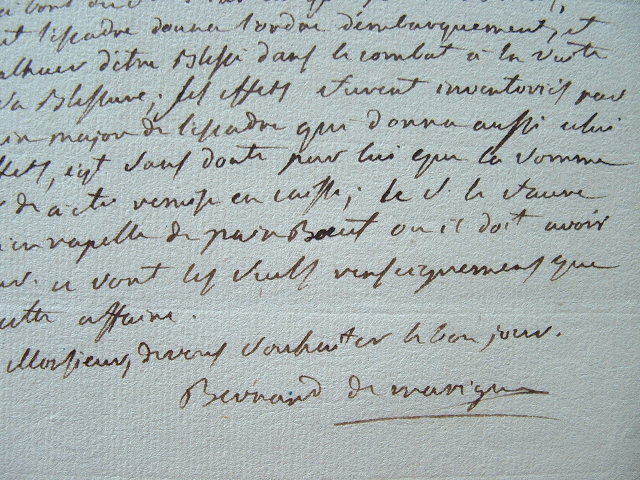 l'escadre donna l'ordre d'embarquement, et
d'être Blessé dans le combat à la suite
sa Blessure; ses effets furent inventoriés par
major de l'escadre qui donna aussi
est sans doute par lui que la somme
de a été remise en caisse; le S. le
rapelle de painBoeuf ou il doit avoir
ce sont les seuls renseignemens que
cette affaire.
Monsieur, de vous souhaiter le bon jour.
Bernard de marigny